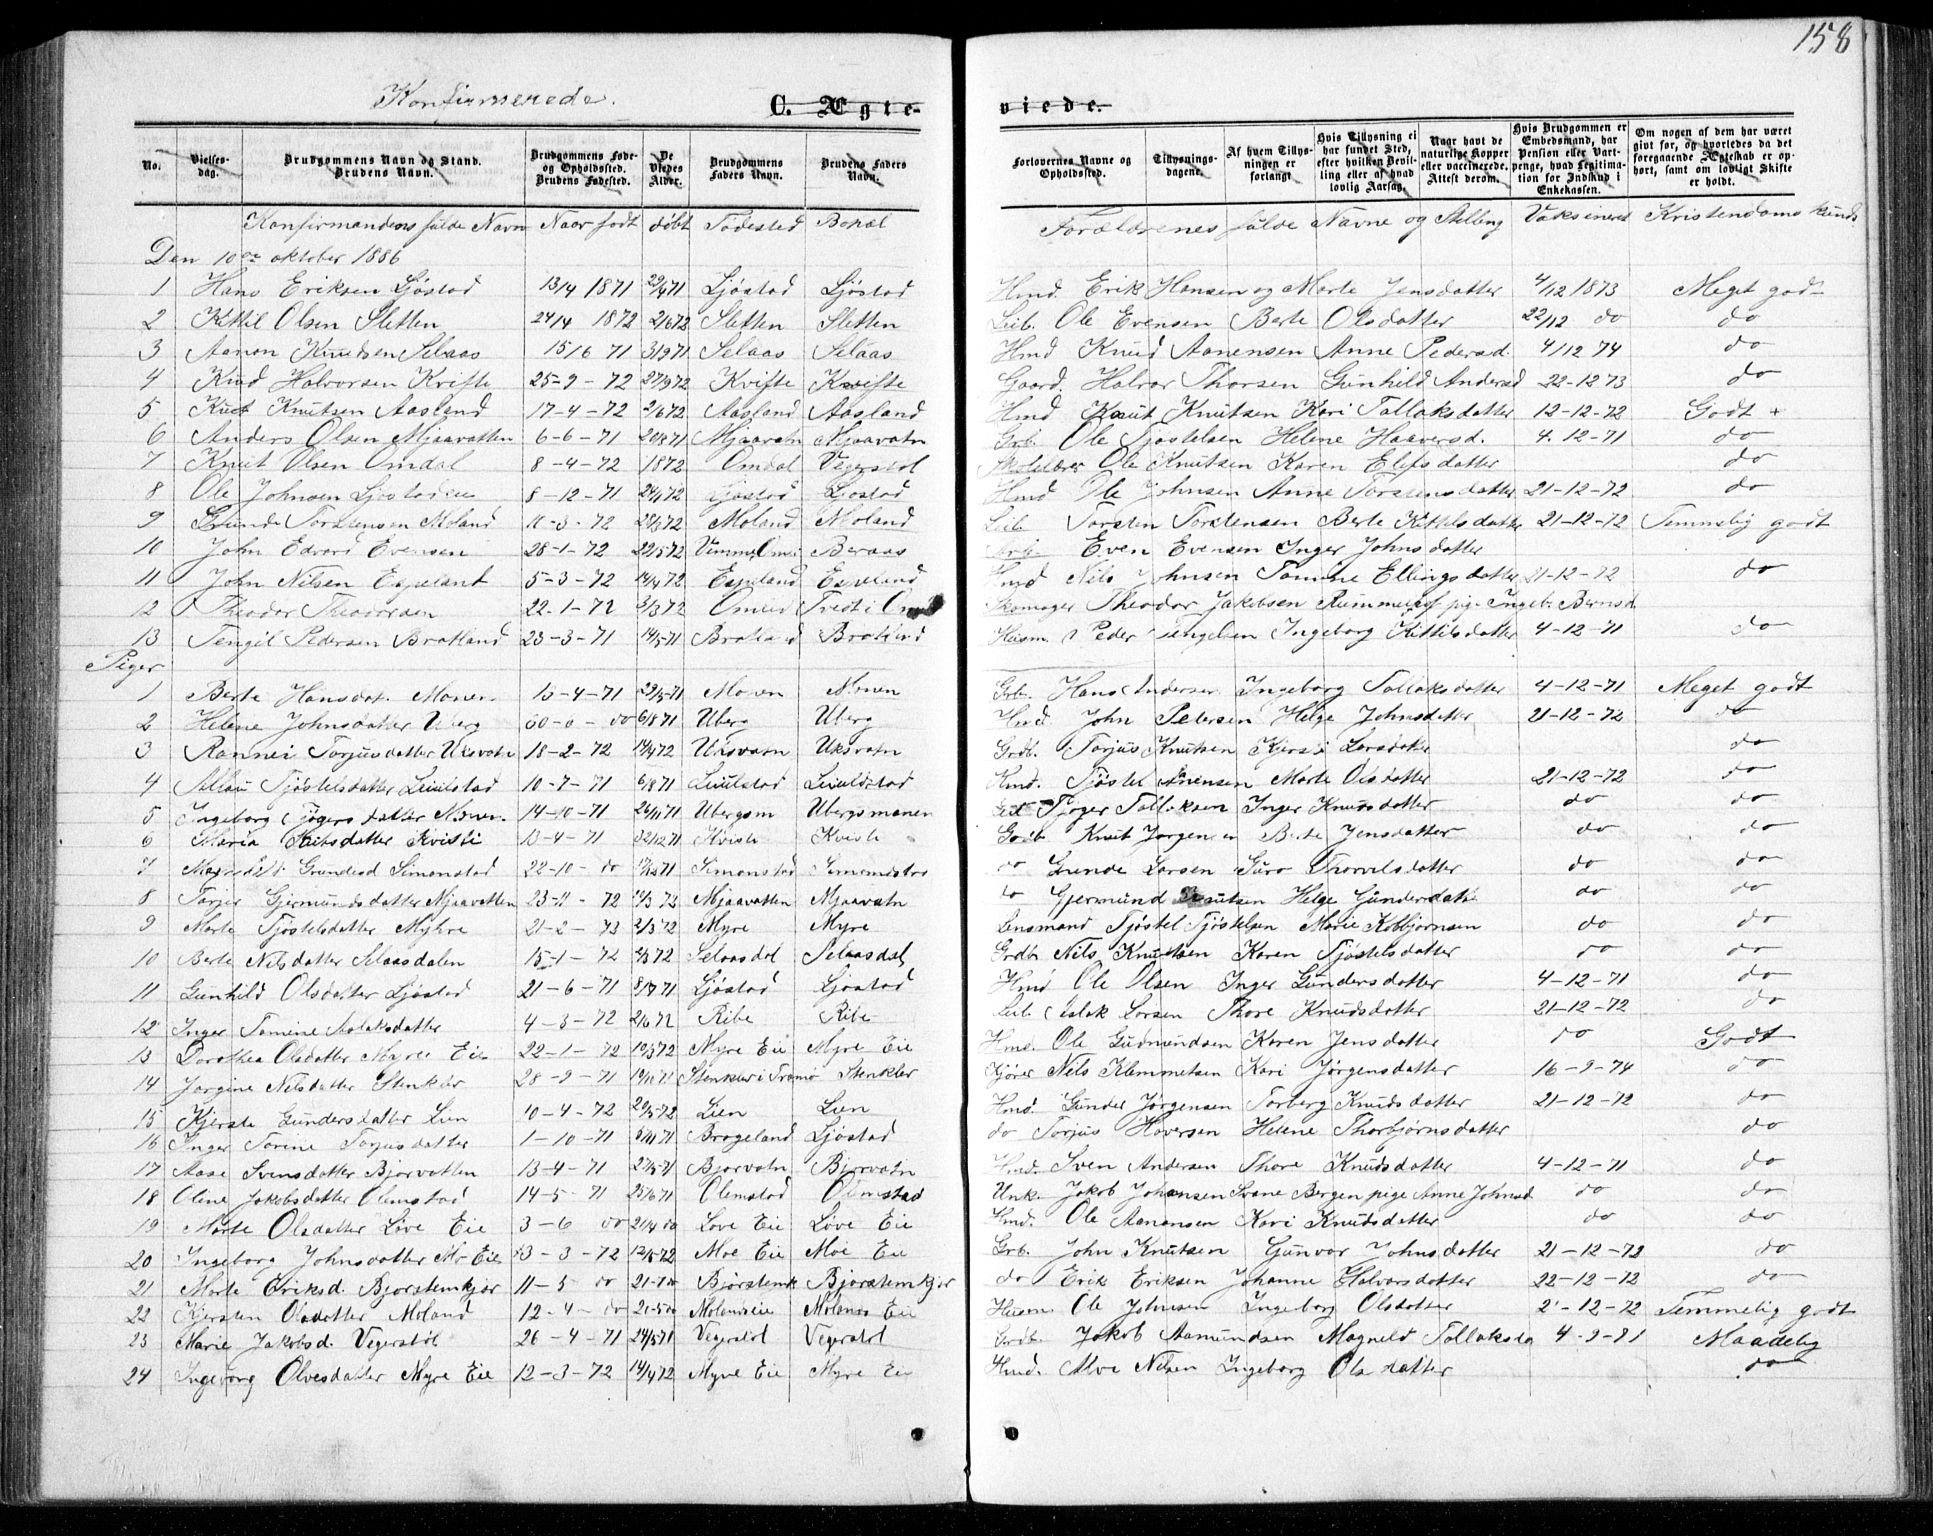 158
Konfirmerede.
C. Ægte-
viede.
No.
Vielses-
dag.
Brudgommens Navn og Stand.
Brudens Navn.
Brudgommens Føde-
og Opholdssted.
Brudens Fødested.
De
Viedes
Alder.
Brudgommens
Faders Navn.
Brudens Faders
Navn.
Forlovernes Navne og
Opholdssted.
Tillysnings-
dagene.
Af hvem Tillys-
ningen er
forlangt
Hvis Tillysning ei
har fundet Sted,
efter hvilken Bevil-
ling eller af hvad
lovlig Aarsag.
Naar havt de
naturlige Kopper
eller vaccinerede.
Attest derom.
Hvis Brudgommen er
Embedsmand, har
Pension eller Vart-
penge, hvad Legitima-
tion for Indskud i
Enkekassen.
Om nogen af dem har været
givt før, og hvorledes da det
foregaaende Ægteskab er op-
hørt, samt om lovligt Skifte
er holdt.
Konfirmandens fulde Navn Naar født døbt Fødested Bopæl Forældrenes fulde Navne og Stilling Vaksineret Kristendomskunds
Den 10de oktober 1886
1 Hans Eriksen Ljøstad 13/4 1871 29/4 71 Ljøstad Ljøstad Hmd. Erik Hansen og Marte Jensdatter 4/12 1873 Meget godt
2 Kittil Olsen Sletten 24/4 1872 2/6 72 Sletten Sletten Leib. Ole Evensen Berte Olsdatter 22/12 do do
3 Aanon Knudsen Selaas 15/6 71 3/9 71 Selaas Selaas Hmd Knud Aanensen Anne Pedersd. 4/12 74 do
4 Knud Halvorsen Kvifte 25-9-72 27/9 72 Kvifte Kvifte Gaard. Halvor Thorsen Gunhild Andersd 22-12 73 do
5 Knut Knutsen Aasland 17-4-72 2/6 72 Aasland Aasland Hmd Knut Knutsen Kari Tallaksdatter 12-12-72 Godt +
6 Anders Olsen Mjaavatten 6-6-71 20/8 71 Mjaavatn Mjaavatn Grb. Ole Tjøstelsen Helene Haaversd. 4.12-71 do
7 Knut Olsen Omdal 8-4-72 1872 Omdal Vegerstøl Skolelærer Ole Knutsen Karen Elefsdatter do
8 Ole Johnsen Ljøstadeie 8-12-71 24/1 72 Ljøstad Ljøstad Hmd Ole Johnsen Anne Torstensdatter 21-12-72 do
9 Grunde Torstensen Moland 11-3-72 28/3 72 Moland Moland Leib Torsten Torstensen Berte Kittilsdatter 21-12-72 Temmelig godt
10 John Edvard Evensen 28-1-72 22/5 72 Beraas Even Evensen Inger Johnsdatter
11 John Nilsen Espelant 5-3-72 14/4 72 Espeland Espeland Hmd Nils Johnsen Tomine Ellingsdatter 21-12-72 do
12 Theodor Theodorsen 22-1-72 3/3 72 Omlid Tvedt i Skomager Theodor Jakobsen pige Ingeb. Bernsd.
13 Tengil Pedersen Bratland 23-3-71 14/5 71 Bratland Bratland Husm. Peder Tengelsen Ingeborg Kittilsdatter 4-12-71 do
Piger
1 Berte Hansdat. Monen 15-4-71 29/5-71 Monen Monen Grb. Hans Andersen Ingeborg Tallaksdatter 4-12-71 Meget godt
2 Helene Johnsdatter Uberg 6/8 71 Uberg Uberg Hmd John Petersen Helge Johnsdatter 21-12-72 do
3 Rannei Torjusdatter Uksvatn 18-2-72 14/4 72 Uksvatn Uksvatn Grdb. Torjus Knutsen Kjersti Larsdatter do
4 Tjøstelsdatter Leiulstad 10-7-71 6/8 71 Leiulstad Leiuldstad Hmd. Tjøstel Marte Olsdatter 21-12-72 do
5 Ingeborg Tjøgersdatter Monen 14-10-71 26/11 71 Ubergsm Ubergsmonen Tjøger Tallaksen Inger Knudsdatter do do
6 Maria Knutsdatter Kvisti 13-4-71 22/12 71 Kvisti Kvisti Grdb. Knut Jorgensen Berte Jensdatter do do
7 Grundesd Simonstad 22-10-do Simonstad Simonstad do Grunde Larsen Guro Thorvelsdatter do do
8 Torjer Gjermundsdatter Mjaavatten 23-2-72 Mjaavatn Mjaavatn do Gjermund Knutsen Helge Gundersdatter do do
9 Marte Tjøstelsdatter Myhre 21-2-73 2/3 72 Myre Myre Lensmand Tjøstel Tjøstelsen Marie Kolbjørnsen do do
10 Berte Nilsdatter Selaasdalen 15-1-72 Selaasdal Selaasdal Grdb Nils Knutsen Karen Tjøstelsdatter do do
11 Gunhild Olsdatter Ljøstad 21-6-71 8/7 71 Ljøstad Ljøstad Hmd Ole Olsen Inger Gundersdatter 4-12-71 do
12 Inger Tomine Aslaksdatter 4-3-72 2/6 72 Ribe Ribe Leib. Aslak Larsen Thore Knudsdatter 21-12-72 do
13 Dorothea Olsdatter Myre Eie 22-1-72 10/3 72 Myre Eie Myre Eie Hmd. Ole Gudmundsen Karen Jensdatter do Godt
14 Jørgine Nilsdatter Stenkler 28-9-71 19/11 71 Stenkler i Tromø Stenkler Nils Klemmetsen Kari Jørgensdatter 16-9-74 do
15 Kjerste Gundersdatter Lien 10-4-72 20/5-72 Lien Lien Hmd. Gunder Jørgensen Torberg Knudsdatter 21-12-72 do
16 Inger Torine Torjusdatter 1-10-71 5/11 71 Brogeland Ljøstad do Torjus Hoversen Helene Thorbjørnsdatter do
17 Aase Svensdatter Bjorvatten 13-4-71 27/5-71 Bjorvatn Bjorvatn Hmd. Sven Andersen Thore Knudsdatter 4-12-71 do
18 Oline Jakobsdatter Olimstad 14-5-71 25/6 71 Olimstad Olimstad Unk. Jakob Johansen Svane Bergen pige Anne Johnsd do do
19 Marte Olsdatter Løve Eie 3-6 do 21/4 do Løve Eie Løve Eie Hmd. Ole Aanonsen Kari Knudsdatter do do
20 Ingeborg Johnsdatter Mo Eie 13-3-72 12/5-72 Moe Eie Moe Eie Grb. John Knutsen Gunvor Johnsdatter 21-12-72 do
21 Marte Eriksd. Bjorstemkjør 11-5 do 21-7 do Bjørstemk Bjorstemkjør do Erik Eriksen Johanne Halvorsdatter 22-12-72 do
22 Kjersten Olsdatter Moland 12-4-do 20-5 do Molands Eie Husm. Ole Johnsen Ingeborg Olsdatter 21-12-72 Temmelig godt
23 Marie Jakobsd. Vegerstøl 26-4-71 24/5 71 Vegerstøl Vegerstøl Grdb. Jakob Aamundsen Magnild Tallaksda 4-9-81 Maadelig
24 Ingeborg Olvesdatter Myre Eie 12-3-72 14/4 72 Myre Eie Myre Eie Hmd. Nilsen Ingeborg Olsdatter do